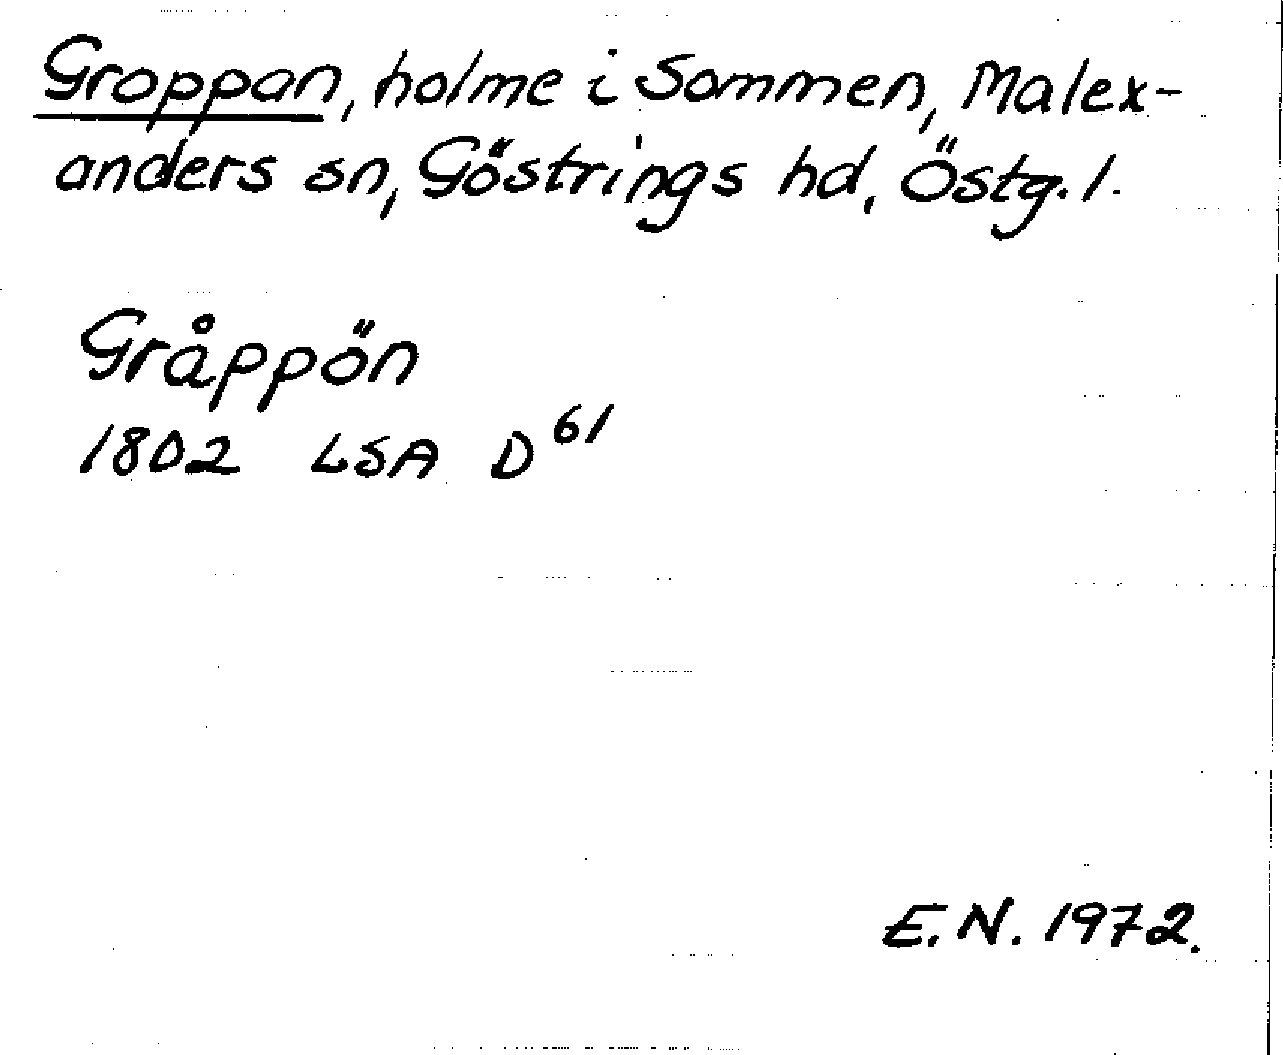 Groppan, holme i Sommen, Malex-
anders sn, Göstrings hd, Östg. l.
Gråppön
1802 LSA D 61
E.N. 1972.